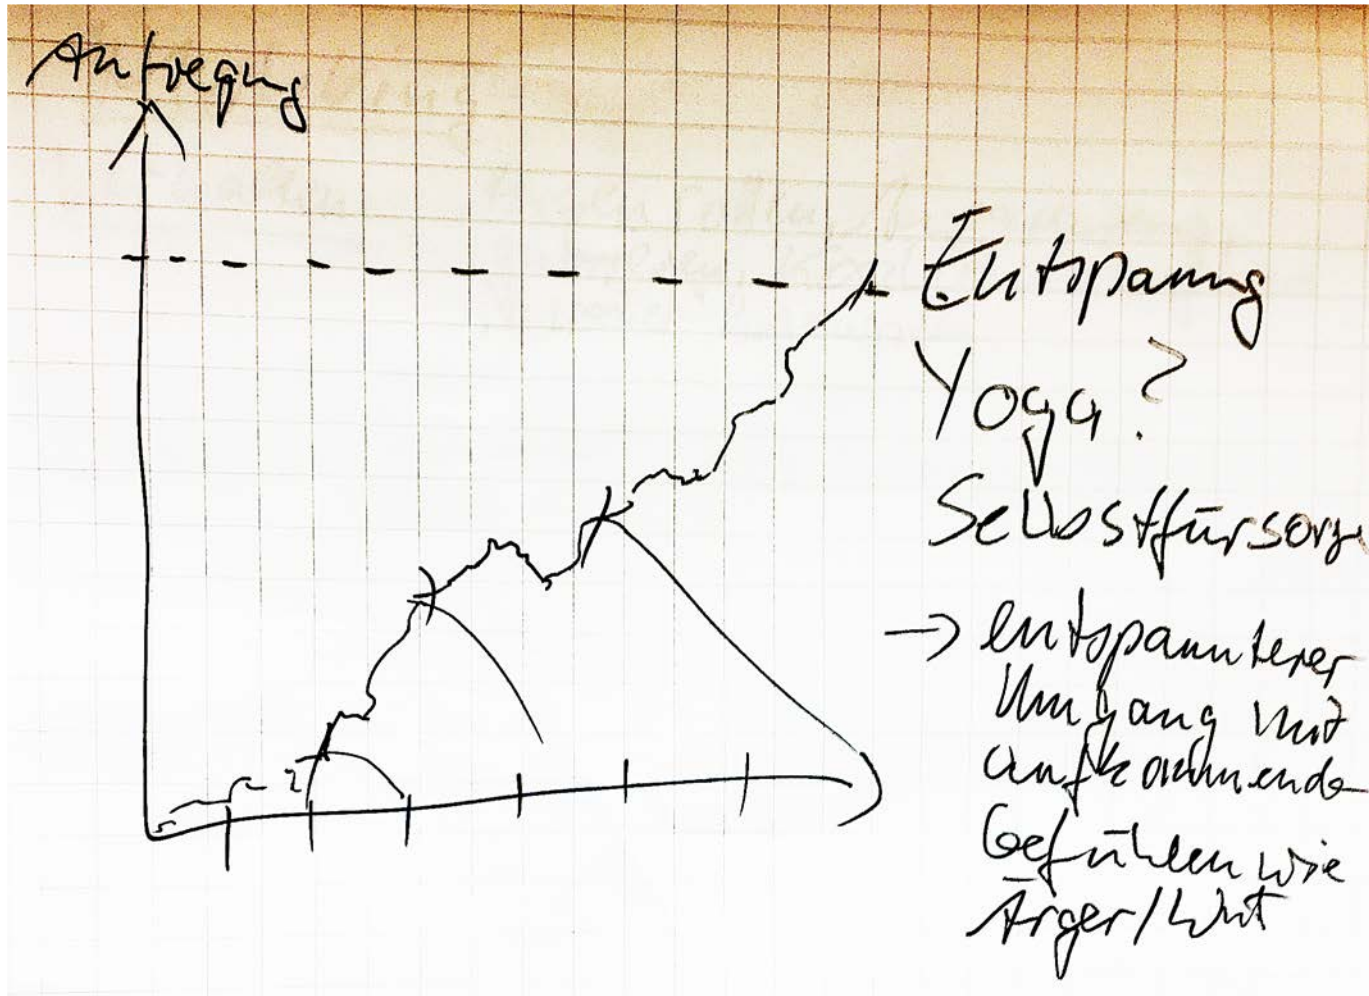 Aufregung
Entspanng
Yoga?
Selbstfürsorge
→ entspannterer
Umgang mit
aufkommende
Gefühlen wie
Ärger/Wut